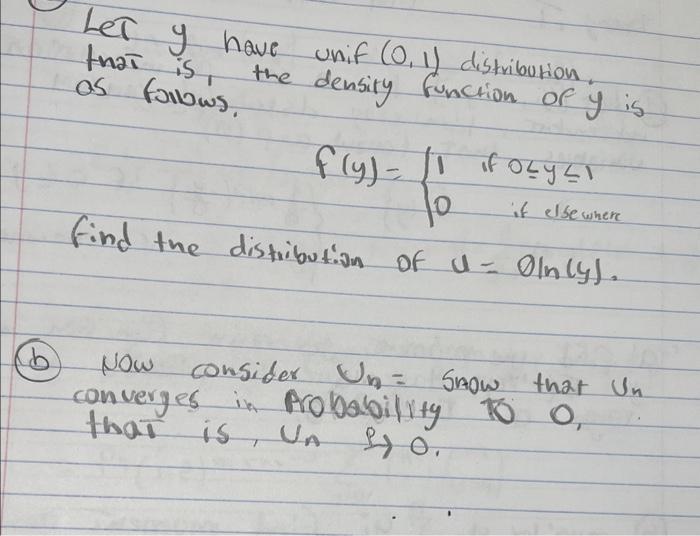 Let y have unif (0,1) distribution.
that is, the density function of y is
as follows.
f(y) = { 1 if 0≤y≤1
0 if elsewhere
find the distribution of U = θln(y).
(b) Now consider Un = Show that Un
converges in Probability To 0,
that is, Un P→ 0.